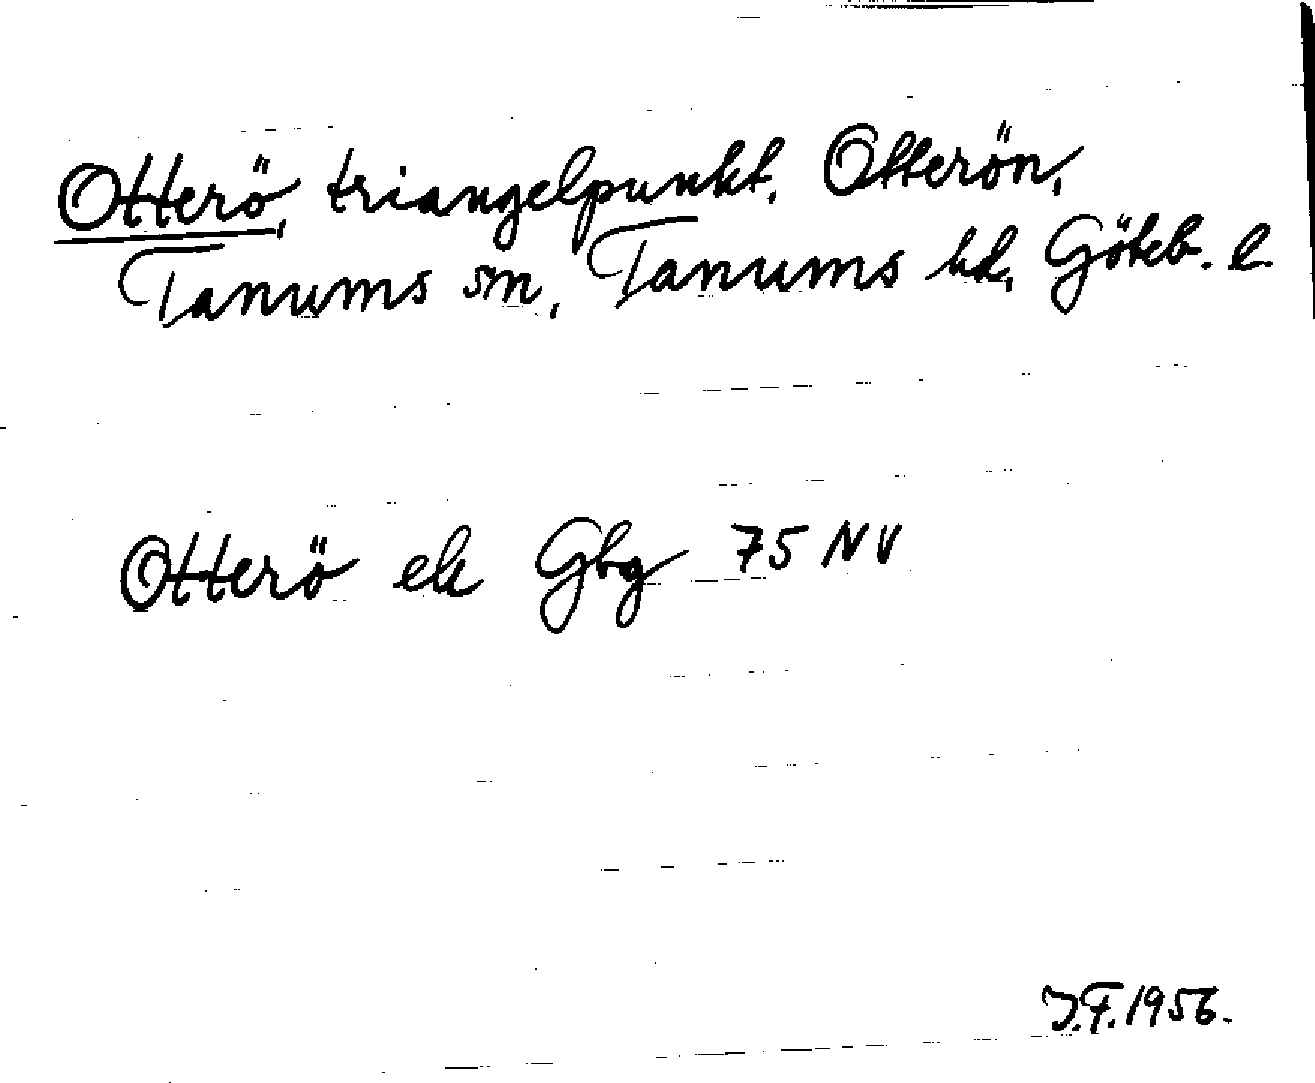 Otterö, triangelpunkt, Otterön,
Tanums sn, Tanums hd, Göteb. l.
Otterö ek Gbg 75 NV
J.F. 1956.